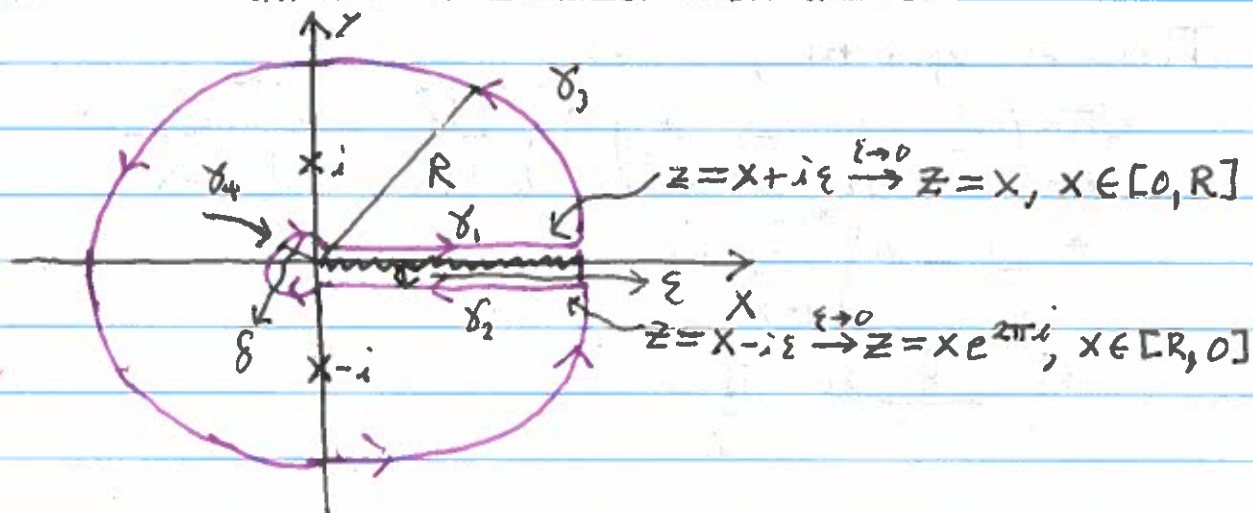 y
γ₃
i
R
γ₄
z = x+iε ε→0 → z = x, x ∈ [0, R]
γ₁
ε
x
γ₂
δ
z = x-iε ε→0 → z = xe^{2πi}, x ∈ [R, 0]
-i